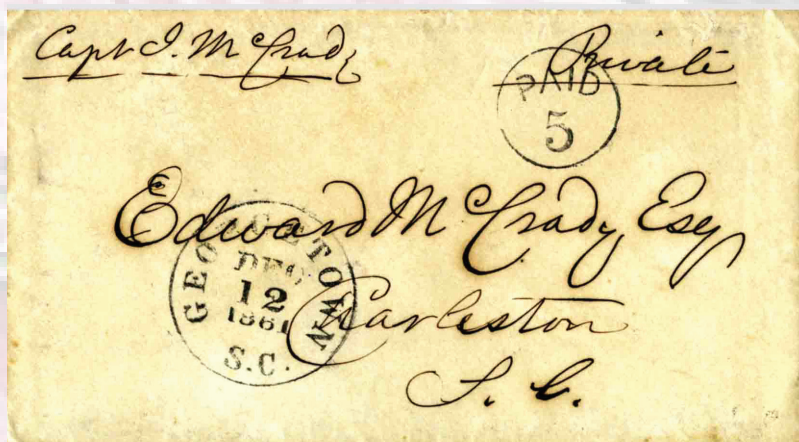 Capt J. McCrady
Private
PAID
5
Edward McCrady Esq
GEORGETOWN
DEC
12
1861
S.C.
Charleston
S. C.